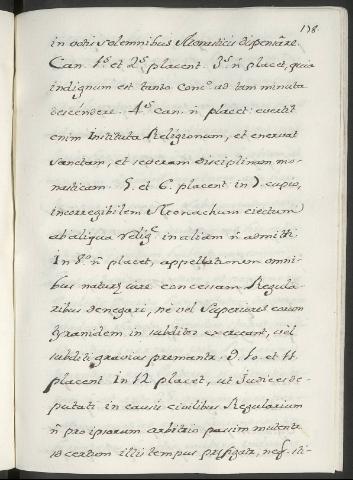 138
in votis solemnibus Monasticis dispensare.
Can. 1.s et 2.s placent. 3.s ñ placet, quia
indignum est tanto Conc.o ad tam minuta
descendere. 4.s can. ñ placet evertit
enim Instituta Religionum, et enervat
sanctam, et severam disciplinam mo-
nasticam. 5. et 6. placent in 7. cupio,
incorregibilem Monachum eiectum
ab aliqua relig.e in aliam ñ admitti.
In 8.o ñ placet, appellationem omni-
bus naturę iure concessam Regula-
ribus denegari, ne vel Superiores eorum
tyranidem in subditos exerceant, vel
subditi gravius premantr. 9. 10. et 11.
placent. In 12. placet, ut Iudices de-
putati in causis civilibus Regularium
ñ pro ipsorum arbitrio passim mutentr
sed certum illis tempus